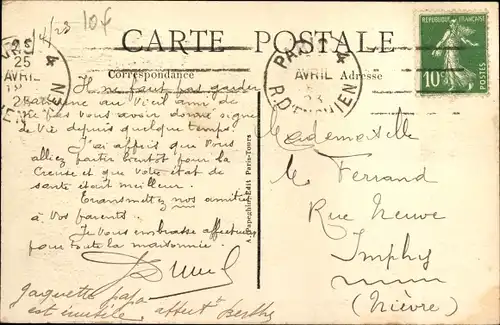 10f
CARTE POSTALE
Correspondance
Adresse
REPUBLIQUE FRANÇAISE
10c
POSTES
25
AVRIL
23
4
AVRIL
A. Papeghin Edit Paris-Tours
Il ne faut pas garder
rancune au Vieil ami de
ne pas vous avoir donné signe
de Vie depuis quelque temps
J'ai appris que Vous
alliez partir bientôt pour la
Creuse et que votre état de
santé était meilleur.
Transmettez nos amitiés
à Vos parents
Je Vous embrasse affectueusement
pour toute la maisonnée
est inutile affectt Berthe
Mademoiselle
M Ferrand
Rue Neuve
Imphy
(Nièvre)